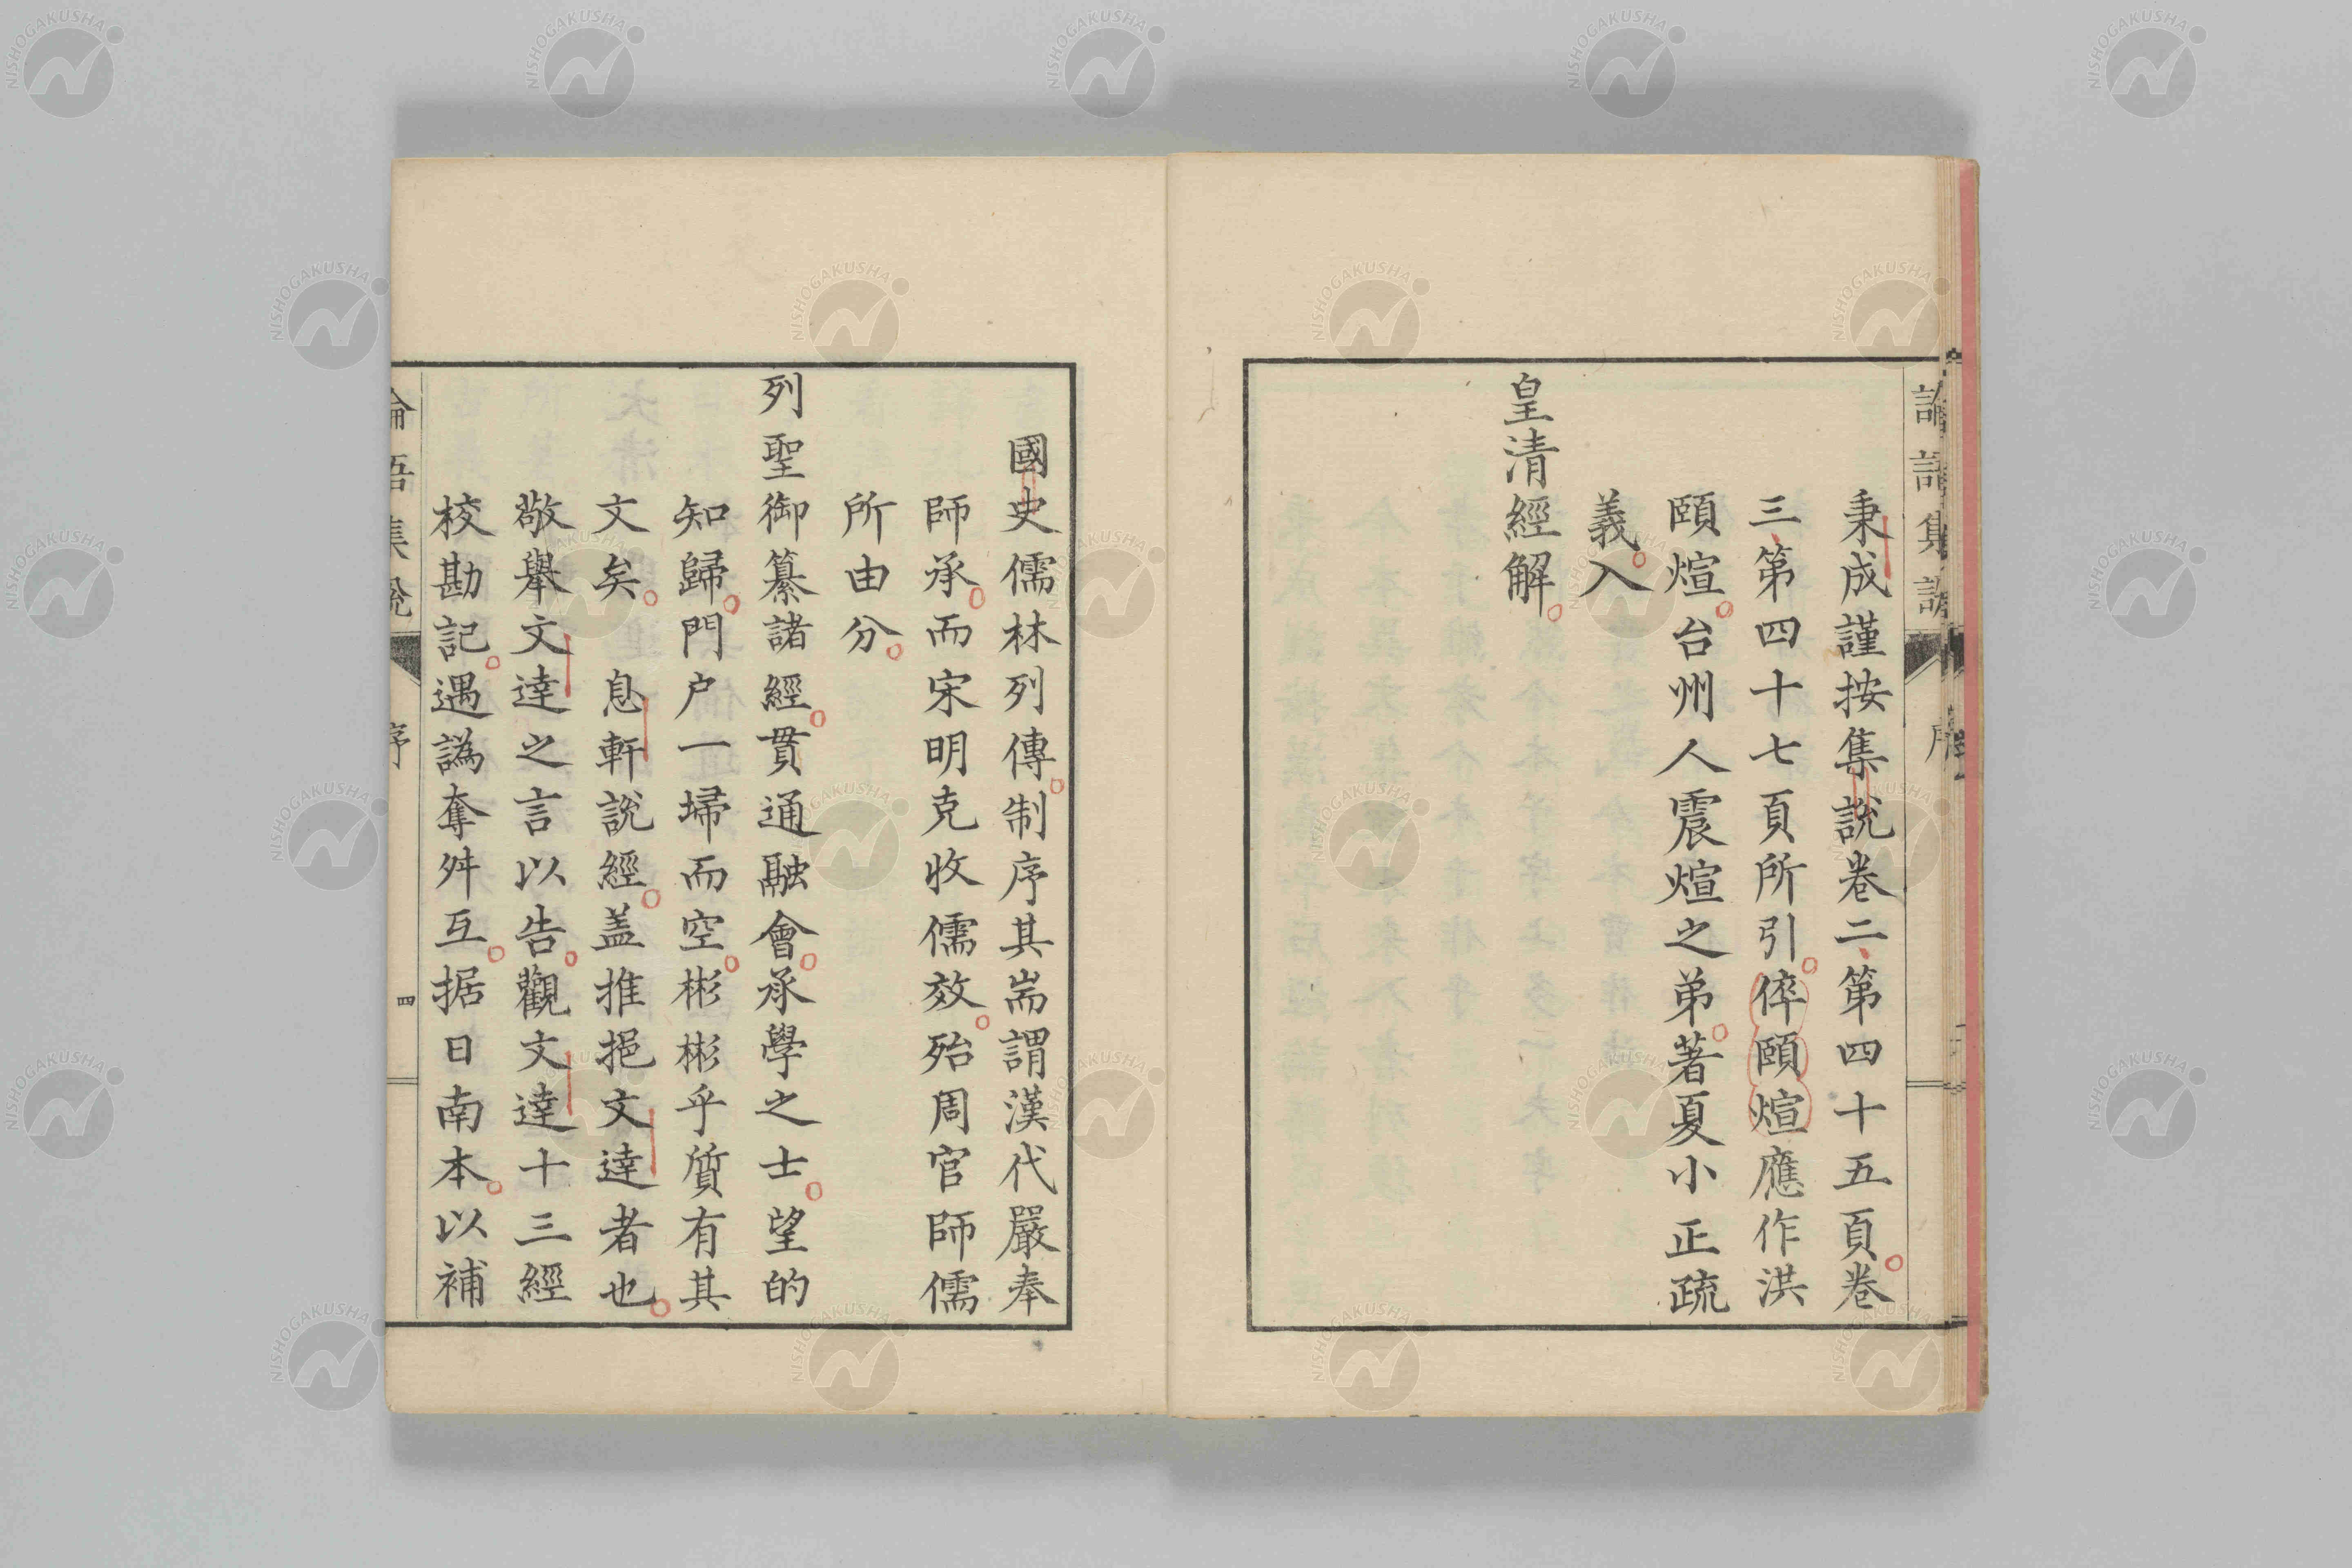 秉成謹按集說卷二第四十五頁卷
三第四十七頁所引倅頤煊應作洪
頤煊台州人震煊之弟著夏小正疏
義入
皇清經解
國史儒林列傳制序其耑謂漢代嚴奉
師承而宋明克收儒效殆周官師儒
所由分
列聖御纂諸經貫通融會承學之士望的
知歸門户一埽而空彬彬乎質有其
文矣 息軒說經盖推挹文達者也
敬舉文達之言以告觀文達十三經
校勘記遇譌奪舛互据日南本以補
論語集說 序 四
NISHOGAKUSHA